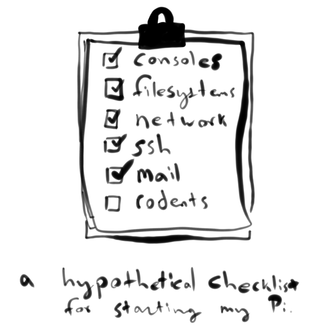 consoles
filesystems
network
ssh
mail
rodents
a hypothetical checklist
for starting my Pi.